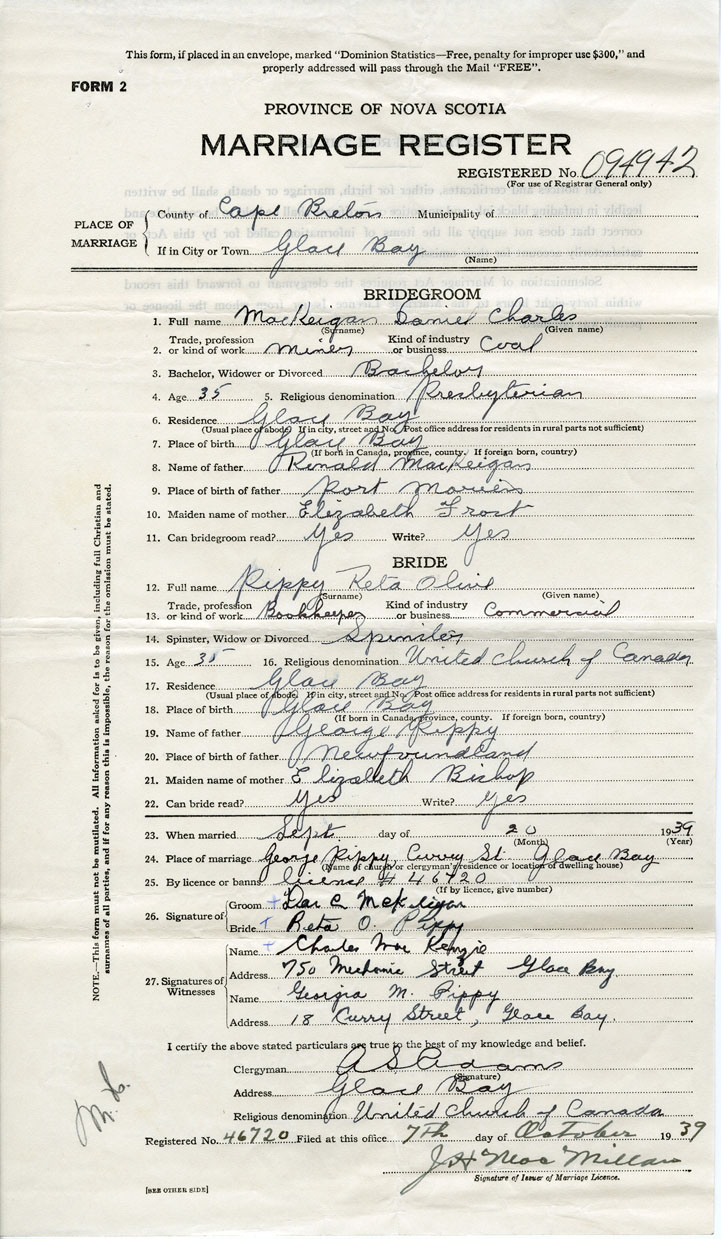 This form, if placed in an envelope, marked "Dominion Statistics—Free, penalty for improper use $300," and
properly addressed will pass through the Mail "FREE".
FORM 2
PROVINCE OF NOVA SCOTIA
MARRIAGE REGISTER
REGISTERED No. 094942
(For use of Registrar General only)
PLACE OF MARRIAGE
County of Cape Breton Municipality of
If in City or Town Glace Bay
(Name)
BRIDEGROOM
1. Full name MacKeigan Daniel Charles
(Surname) (Given name)
2. Trade, profession or kind of work Miner Kind of industry or business Coal
3. Bachelor, Widower or Divorced Bachelor
4. Age 35 5. Religious denomination Presbyterian
6. Residence Glace Bay
(Usual place of abode. If in city, street and No. Post office address for residents in rural parts not sufficient)
7. Place of birth Glace Bay
(If born in Canada, province, county. If foreign born, country)
8. Name of father Ronald MacKeigan
9. Place of birth of father Port Morien
10. Maiden name of mother Elizabeth Frost
11. Can bridegroom read? Yes Write? Yes
BRIDE
12. Full name Pippy Reta Olive
(Surname) (Given name)
13. Trade, profession or kind of work Bookkeeper Kind of industry or business Commercial
14. Spinster, Widow or Divorced Spinster
15. Age 35 16. Religious denomination United Church of Canada
17. Residence Glace Bay
(Usual place of abode. If in city, street and No. Post office address for residents in rural parts not sufficient)
18. Place of birth Glace Bay
(If born in Canada, province, county. If foreign born, country)
19. Name of father George Pippy
20. Place of birth of father Newfoundland
21. Maiden name of mother Elizabeth Bishop
22. Can bride read? Yes Write? Yes
23. When married Sept. day of 20 1939
(Month) (Year)
24. Place of marriage George Pippy, Curry St. Glace Bay
(Name of church or clergyman's residence or location of dwelling house)
25. By licence or banns licence # 46720
(If by licence, give number)
26. Signature of
Groom Dan C McKeigan
Bride Reta O. Pippy
27. Signatures of Witnesses
Name Charles MacKenzie
Address 750 Mechanic Street Glace Bay.
Name Georgia M. Pippy
Address 18 Curry Street, Glace Bay.
I certify the above stated particulars are true to the best of my knowledge and belief.
Clergyman A S Adams
(Signature)
Address Glace Bay
Religious denomination United Church of Canada
Registered No. 46720 Filed at this office 7th day of October 1939
J H MacMillan
Signature of Issuer of Marriage Licence.
[SEE OTHER SIDE]
NOTE.—This form must not be mutilated. All information asked for is to be given, including full Christian and
surnames of all parties, and if for any reason this is impossible, the reason for the omission must be stated.